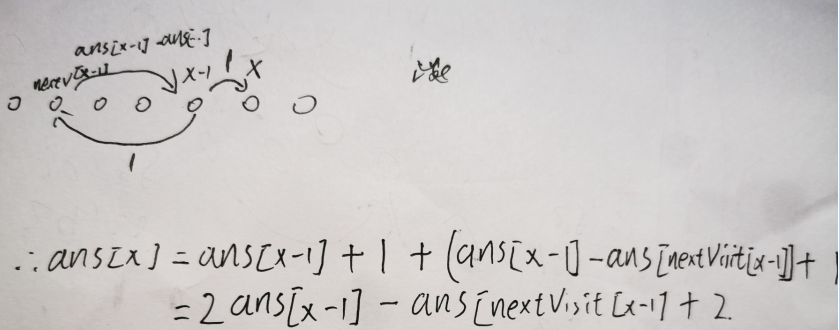 ans[x-1] - ans[·]
nextv[x-1] x-1 1 x
1
∴ ans[x] = ans[x-1] + 1 + (ans[x-1] - ans[nextVisit[x-1]] + 1
= 2 ans[x-1] - ans[nextVisit[x-1] + 2.